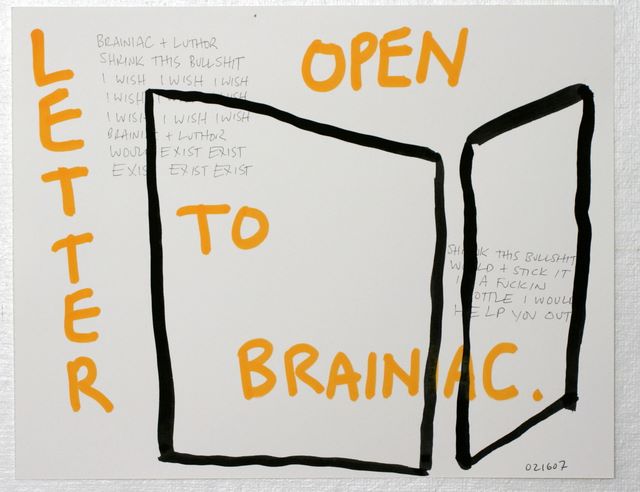 LETTER
OPEN
TO
BRAINIAC.
BRAINIAC + LUTHOR
SHRINK THIS BULLSHIT
I WISH I WISH I WISH
I WISH I WISH I WISH
I WISH I WISH I WISH
BRAINIAC + LUTHOR
WOULD EXIST EXIST
EXIST EXIST EXIST
SHRINK THIS BULLSHIT
WORLD + STICK IT
IN A FUCKIN
BOTTLE I WOULD
HELP YOU OUT
021607